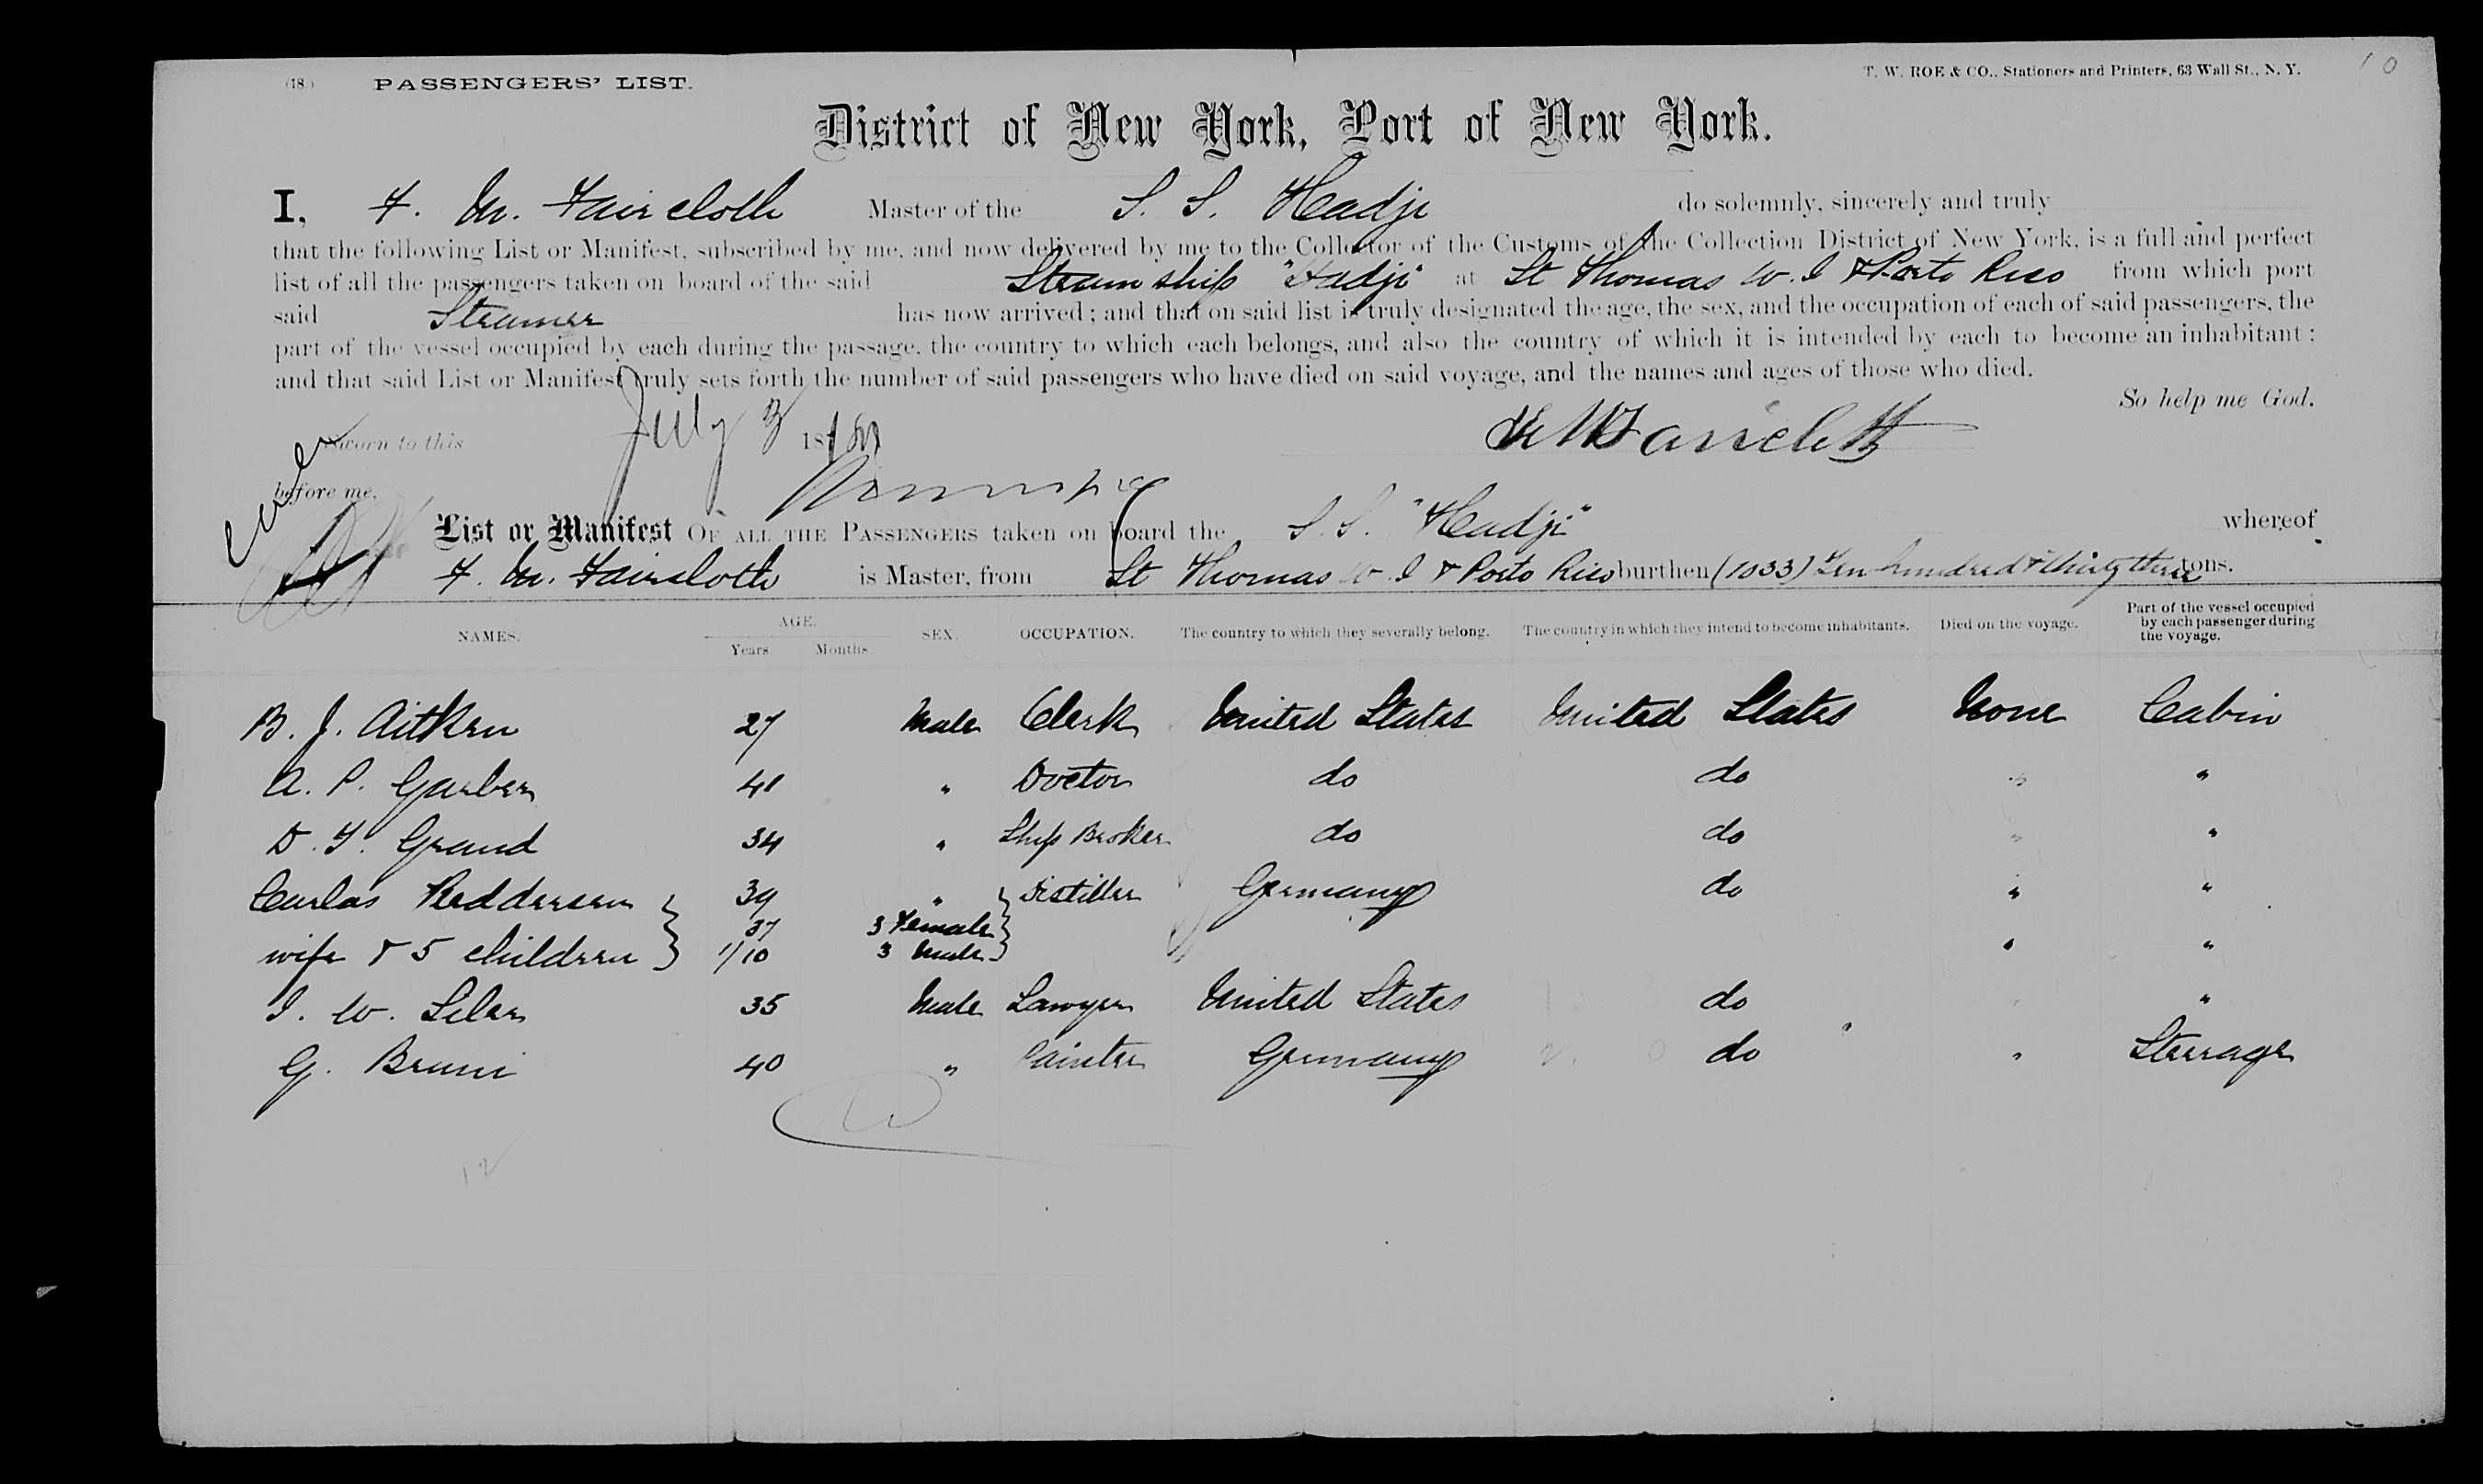 (18.) PASSENGERS' LIST. T. W. ROE & CO., Stationers and Printers, 63 Wall St., N. Y. 10
District of New York, Port of New York.
I, F. M. Faircloth Master of the S. S. Hadji do solemnly, sincerely and truly
that the following List or Manifest, subscribed by me, and now delivered by me to the Collector of the Customs of the Collection District of New York, is a full and perfect
list of all the passengers taken on board of the said Steam ship "Hadji" at St Thomas W. I & Porto Rico from which port
said Steamer has now arrived; and that on said list is truly designated the age, the sex, and the occupation of each of said passengers, the
part of the vessel occupied by each during the passage, the country to which each belongs, and also the country of which it is intended by each to become an inhabitant;
and that said List or Manifest truly sets forth the number of said passengers who have died on said voyage, and the names and ages of those who died.
So help me God.
Sworn to this July 3 18 F M Faircloth
before me,
List or Manifest OF ALL THE PASSENGERS taken on board the S. S. "Hadji" whereof
F. M. Faircloth is Master, from St Thomas W. I & Porto Rico burthen (1033) Ten hundred & thirty three tons.
NAMES. AGE. Years. Months. SEX. OCCUPATION. The country to which they severally belong. The country in which they intend to become inhabitants. Died on the voyage. Part of the vessel occupied by each passenger during the voyage.
B. J. Aitken 27 Male Clerk United States United States None Cabin
A. P. Garber 41 " Doctor do do " "
D. F. Grand 34 " Ship Broker do do " "
Carlos Reddersen 39 " Distiller Germany do " "
37 3 Female
wife & 5 children 1/10 3 Male " "
I. W. Siler 35 Male Lawyer United States do "
G. Bruni 40 " Painter Germany do " Steerage
12